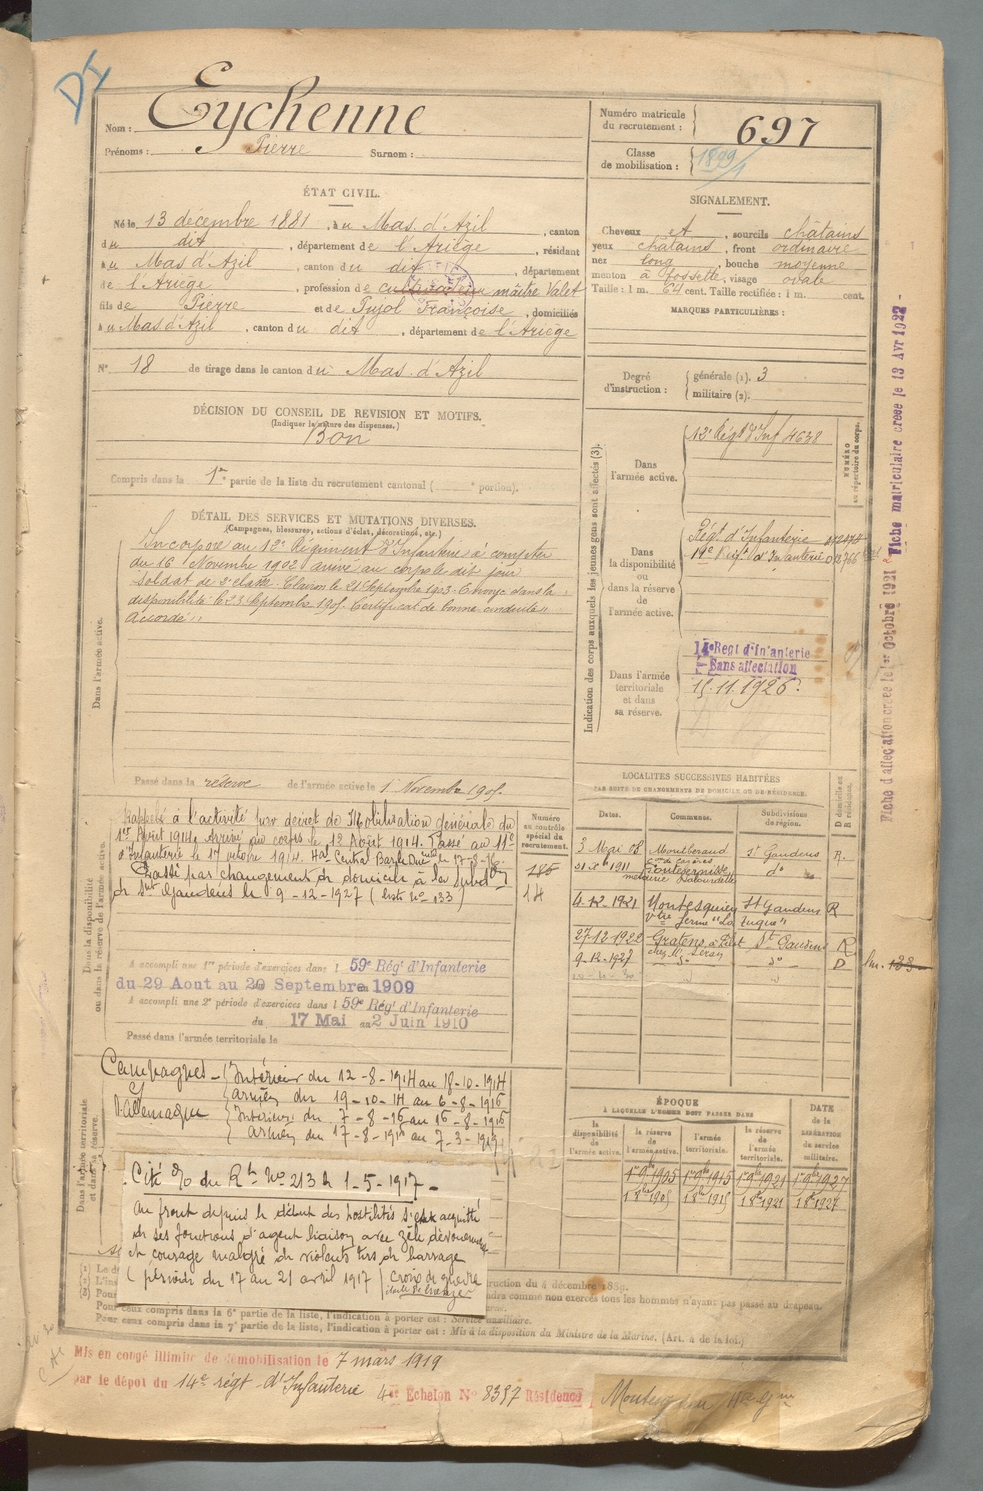 DI
Nom : Eychenne
Prénoms : Pierre Surnom :
Numéro matricule du recrutement : 697
Classe de mobilisation : 1899/1
ÉTAT CIVIL.
Né le 13 décembre 1881, à u Mas d'Azil, canton
du dit, département de l'Ariège, résidant
à u Mas d'Azil, canton du dit, département
de l'Ariège, profession de cultivateur maître Valet
fils de Pierre et de Pujol Françoise, domiciliés
à u Mas d'Azil, canton du dit, département de l'Ariège
N° 18 de tirage dans le canton du Mas d'Azil
SIGNALEMENT.
Cheveux et, sourcils châtains
yeux châtains, front ordinaire
nez long, bouche moyenne
menton à fossette, visage ovale
Taille : 1 m. 64 cent. Taille rectifiée : 1 m. cent.
MARQUES PARTICULIÈRES :
Degré d'instruction : générale (1). 3
militaire (2).
DÉCISION DU CONSEIL DE REVISION ET MOTIFS.
(Indiquer la nature des dispenses.)
Bon
Compris dans la 1re partie de la liste du recrutement cantonal ( portion).
DÉTAIL DES SERVICES ET MUTATIONS DIVERSES.
(Campagnes, blessures, actions d'éclat, décorations, etc.)
Dans l'armée active.
Incorporé au 12e Régiment d'Infanterie à compter
du 16 Novembre 1902 arrivé au corps le dit jour
Soldat de 2e classe. Clairon le 21 Septembre 1903. Envoyé dans la
disponibilité le 23 Septembre 1905. Certificat de bonne conduite
Accordé
Passé dans la réserve de l'armée active le 1 Novembre 1905.
Indication des corps auxquels les jeunes gens sont affectés (3).
Dans l'armée active.
12e Régt d'Inf 4638
NUMÉRO au répertoire du corps.
Dans la disponibilité ou dans la réserve de l'armée active.
Régt d'Infanterie
d'Infanterie
Dans l'armée territoriale et dans sa réserve.
14e Regt d'Infanterie
Sans affectation
15.11.1926
Fiche d'affectation creee le 1er Octobre 1921
Fiche matriculaire creee le 13 Avr 1922
LOCALITÉS SUCCESSIVES HABITÉES
PAR SUITE DE CHANGEMENTS DE DOMICILE OU DE RÉSIDENCE.
Dates. Communes. Subdivisions de région. D domicile ou R résidence.
3 Mai 08 Montberaud St Gaudens R.
1911 do
4-12-1921 Montesquieu St Gaudens R
27-12-1922 Gratens St Gaudens R
9-12-1927 do do D
Dans la disponibilité ou dans la réserve de l'armée active.
Numéro au contrôle spécial du recrutement.
Rappelé à l'activité par décret de Mobilisation générale du
1er Août 1914. Arrivé au corps le 12 Août 1914. Passé au 11e
d'Infanterie le 19 octobre 1914.
Passé par changement de domicile à la Subdon
de St Gaudens le 9-12-1927 (liste No 133)
A accompli une 1re période d'exercices dans l 59e Régt d'Infanterie
du 29 Aout au 20 Septembre 1909
A accompli une 2e période d'exercices dans l 59e Régt d'Infanterie
du 17 Mai au 2 Juin 1910
Passé dans l'armée territoriale le
Dans l'armée territoriale et dans sa réserve.
Campagnes - Intérieur du 12-8-1914 au 18-10-1914
C/ armées du 19-10-14 au 6-8-1916
l'Allemagne Intérieur du 7-8-16 au 16-8-1916
armées du 17-8-1916 au 7-3-1919
Cité O/ du Rt No 213 du 1-5-1917 -
Au front depuis le début des hostilités s'est acquitté
de ses fonctions d'agent liaison avec zèle dévouement
et courage malgré de violents tirs de barrage
(période du 17 au 21 avril 1917) Croix de guerre
étoile de bronze
ÉPOQUE
À LAQUELLE L'HOMME DOIT PASSER DANS
la disponibilité de l'armée active. la réserve de l'armée active. l'armée territoriale. la réserve de l'armée territoriale. DATE de la LIBÉRATION du service militaire.
1er 9bre 1905 1er 9bre 1915 1er 9bre 1921 1er 9bre 1927
ruction du 4 décembre 1889.
ndra comme non exercés tous les hommes n'ayant pas passé au drapeau.
Pour ceux compris dans la 6e partie de la liste, l'indication à porter est : Service auxiliaire.
Pour ceux compris dans la 7e partie de la liste, l'indication à porter est : Mis à la disposition du Ministre de la Marine. (Art. 4 de la loi.)
Mis en congé illimité de démobilisation le 7 mars 1919
par le dépot du 14e régt d'Infanterie 4e Echelon No 8397 Résidence Montesquieu Hte Gne